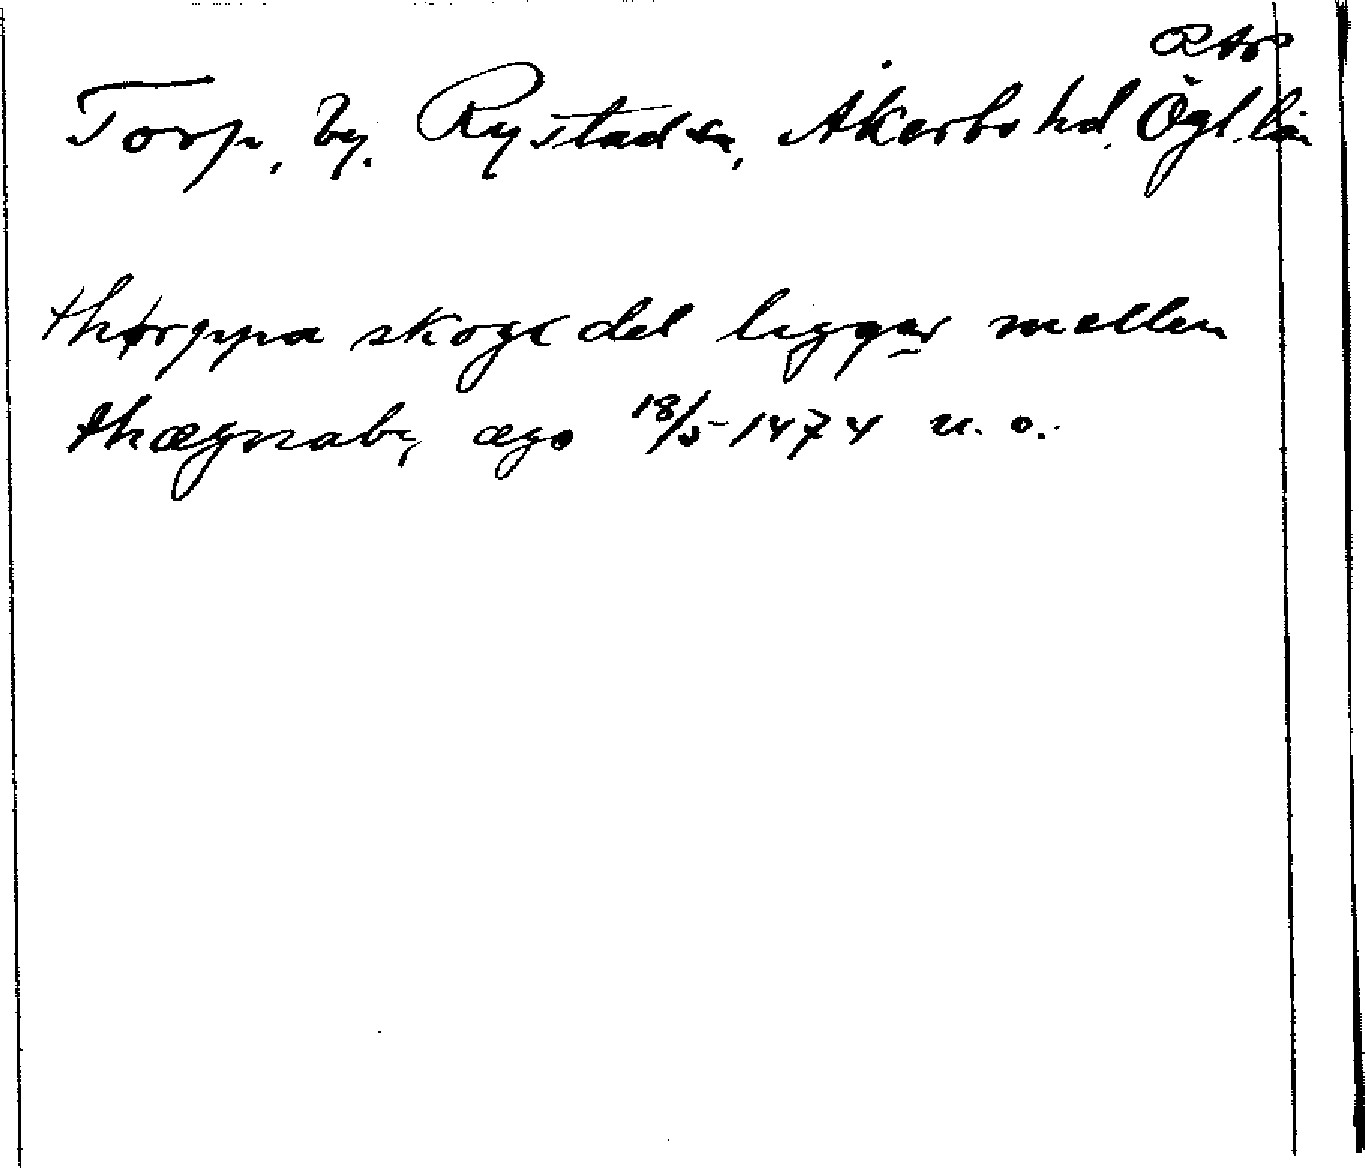 Torp, by. Rystad sn, Åkerbo hd. Ögl. län
thørppa skogx del liggær mellen
thægnaby ægo 18/5 1474 u. o.